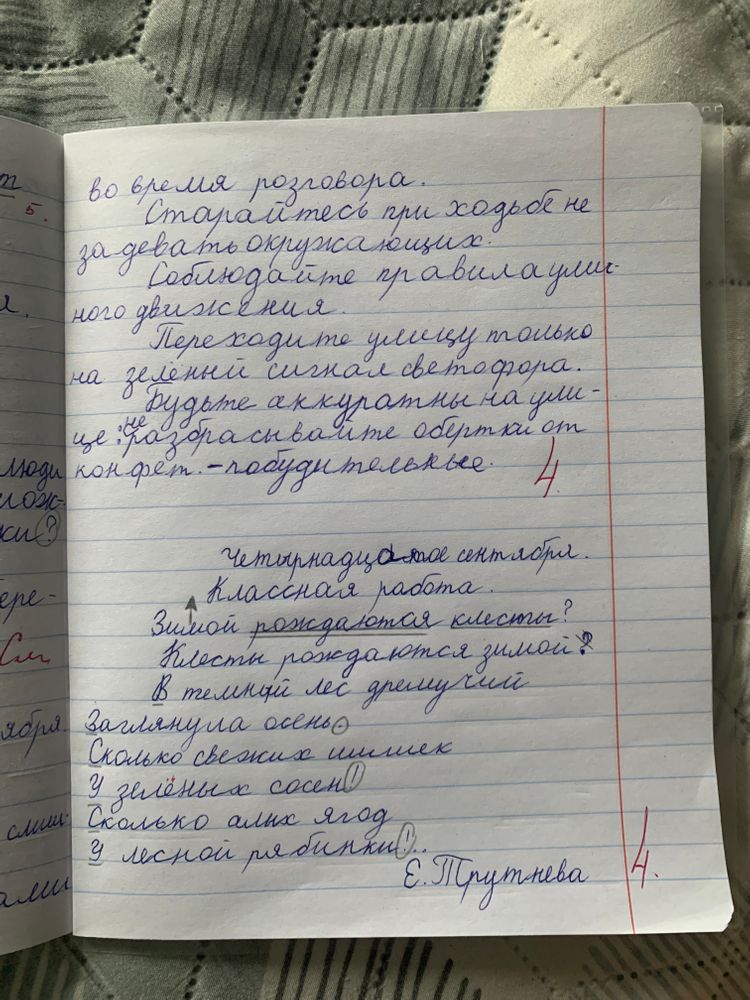 во время розговора.
Старайтесь при ходьбе не
задевать окружающих.
Соблюдайте правила улич-
ного движения.
Переходите улицу только
на зелёный сигнал светофора.
Будьте аккуратны на ули-
це: не разбрасывайте обертки от
конфет. - побудительные.
4.
Четырнадцатое сентября.
Классная работа.
Зимой рождаются клесты?
Клесты рождаются зимой?
В темный лес дремучий
Заглянула осень.
Сколько свежих шишек
У зелёных сосен!
Сколько алых ягод
У лесной рябинки!..
Е. Трутнева
4.
т
5.
я.
люди
лож-
ки?
ере-
См.
ября
слыш-
ами